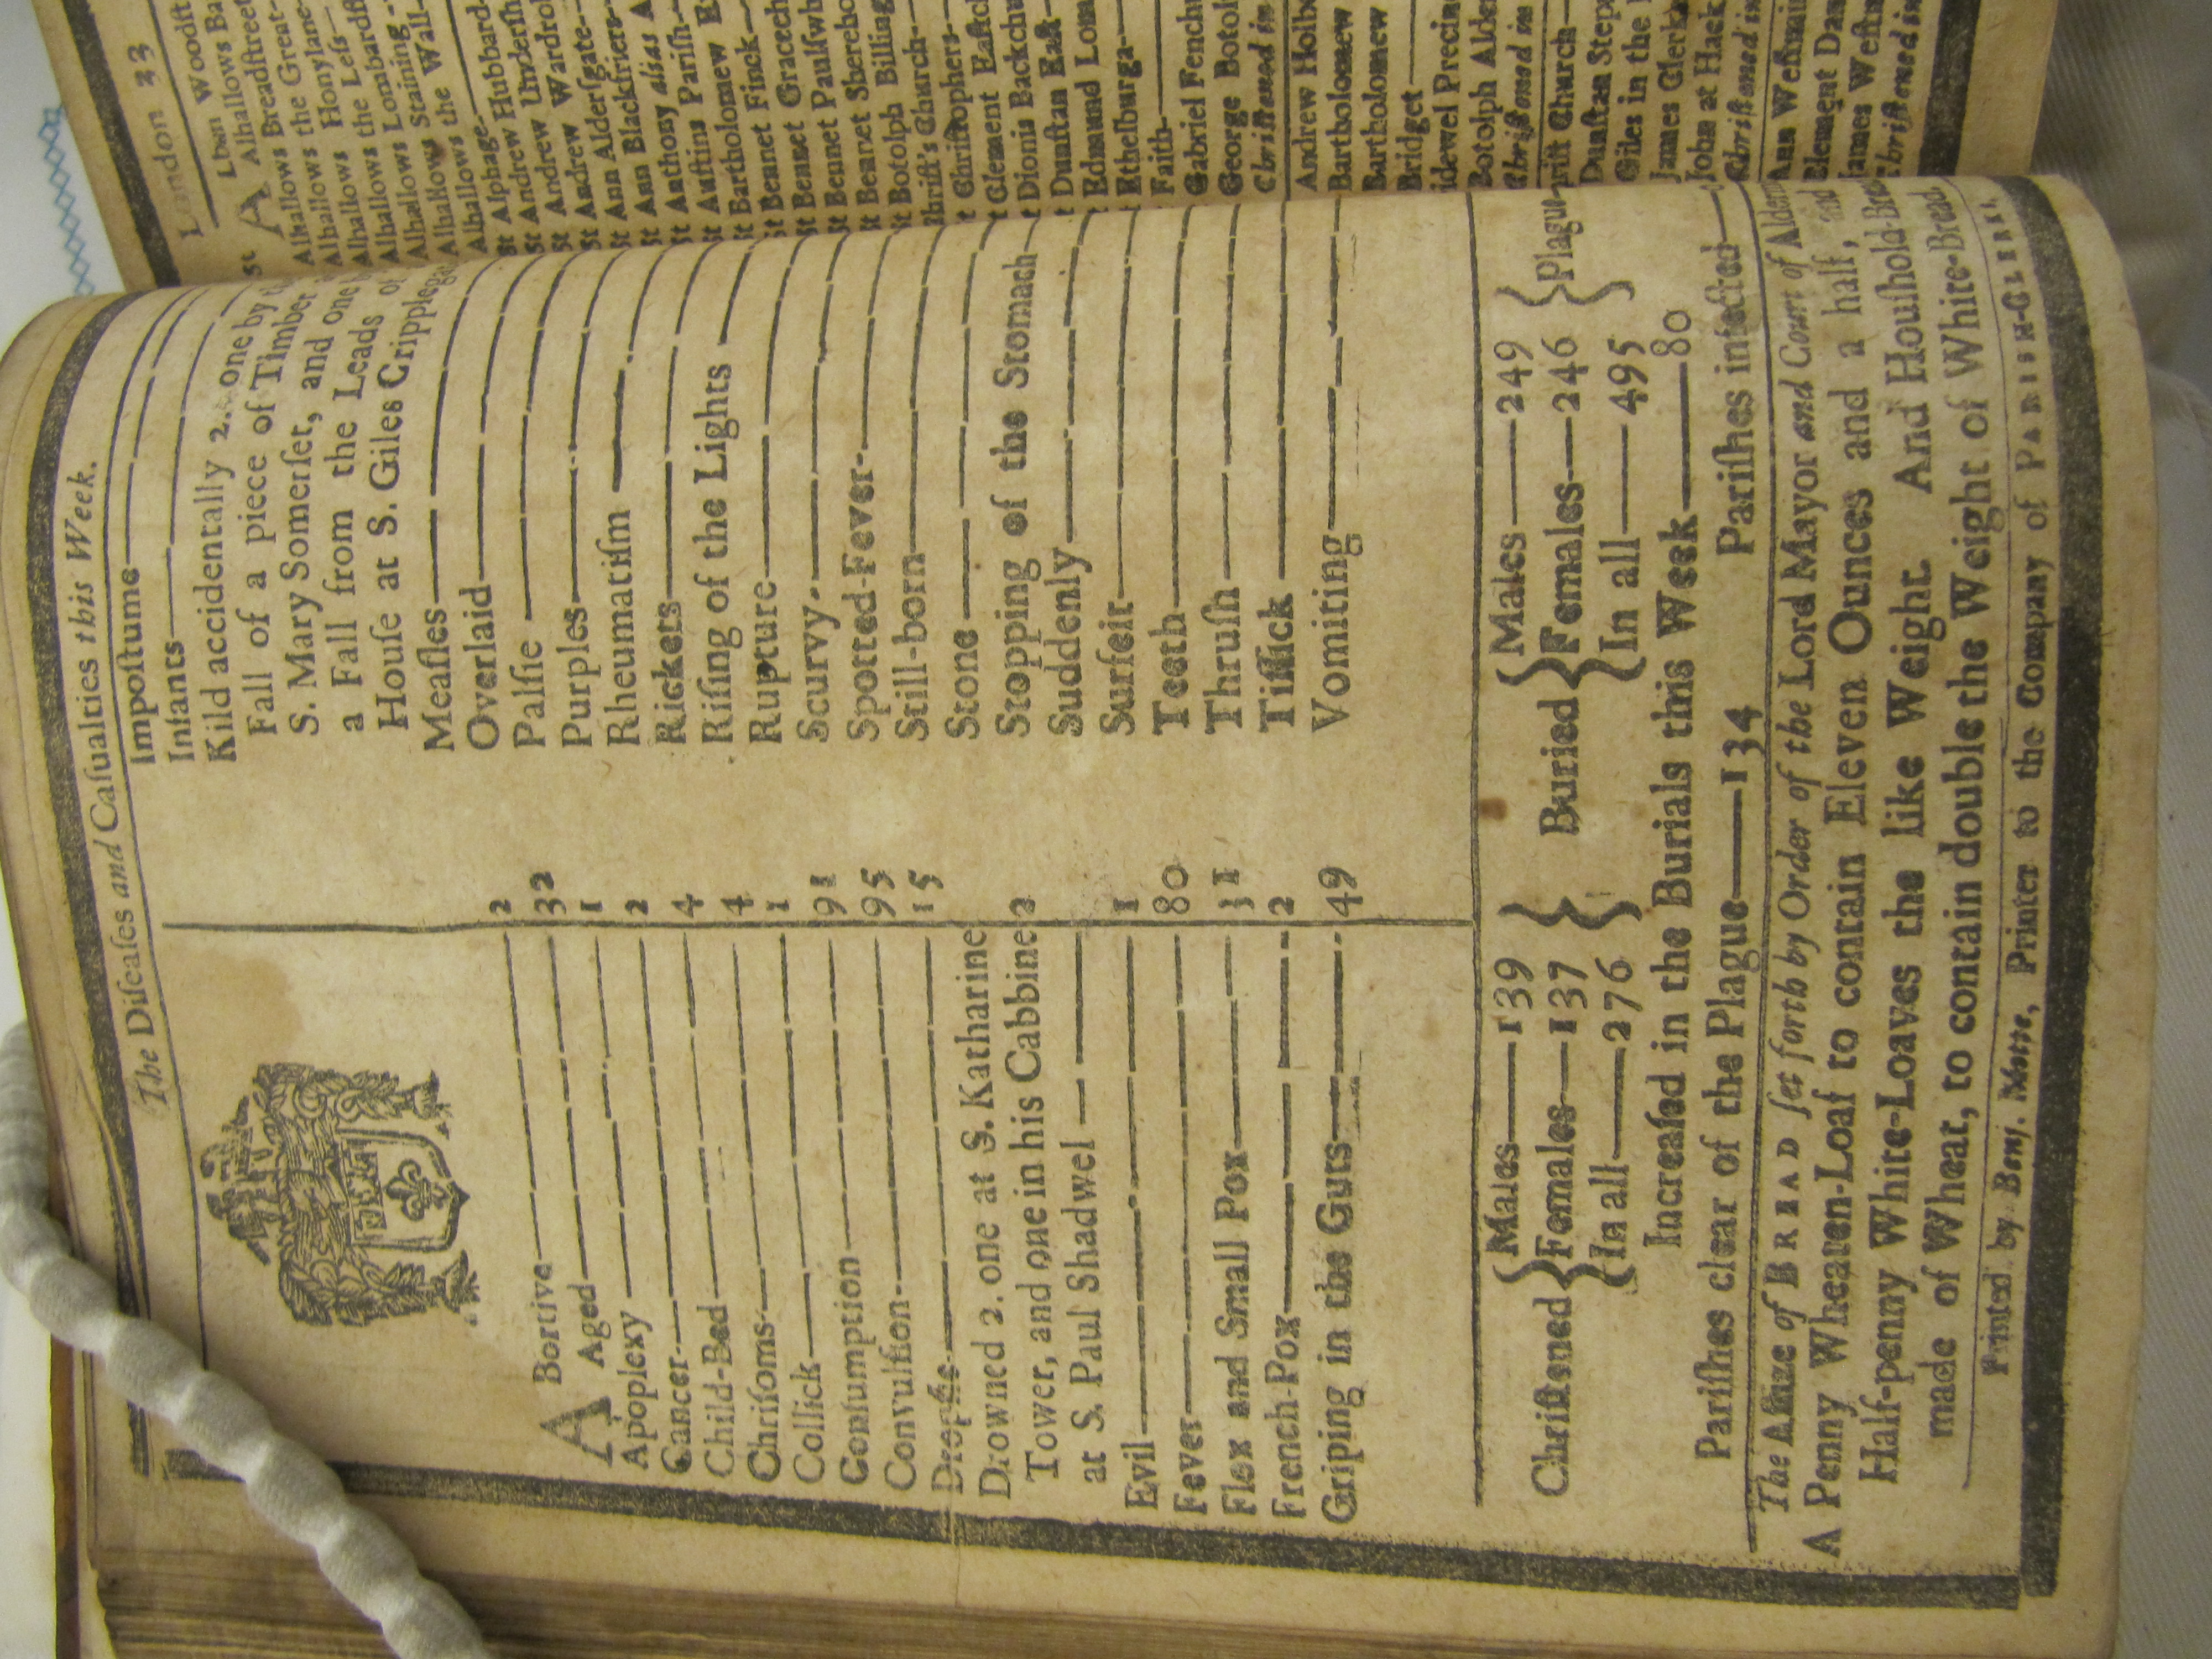 The Diſeaſes and Caſualties this Week.
ABortive 2
Aged 32
Apoplexy 1
Cancer 2
Child-Bed 4
Chriſoms 4
Collick 1
Conſumption 91
Convulſion 95
Dropſie 15
Drowned 2. one at S. Katharine
Tower, and one in his Cabbine 2
at S. Paul Shadwel
Evil 1
Fever 80
Flox and Small Pox 31
French-Pox 2
Griping in the Guts 49
Impoſtume
Infants
Kild accidentally 2. one by
Fall of a piece of Timber
S. Mary Somerſet, and one
a Fall from the Leads of
Houſe at S. Giles Cripplegat
Meaſles
Overlaid
Palſie
Purples
Rheumatiſm
Rickets
Riſing of the Lights
Rupture
Scurvy
Spotted-Fever
Still-born
Stone
Stopping of the Stomach
Suddenly
Surfeit
Teeth
Thruſh
Tiſſick
Vomiting
Chriſtned { Males 139 Females 137 In all 276 } Buried { Males 249 Females 246 In all 495 } Plague
Increaſed in the Burials this Week 80
Pariſhes clear of the Plague 134 Pariſhes infected
The Aſſize of BREAD ſet forth by Order of the Lord Mayor and Court of Alderm
A Penny Wheaten-Loaf to contain Eleven Ounces and a half, and
Half-penny White-Loaves the like Weight. And Houſhold-Bre
made of Wheat, to contain double the Weight of White-Bread
Printed by Benj. Motte, Printer to the Company of PARISH-CLERKS.
London 23
Lban Woodſt
Alhallows Ba
Alhallows Breadſtreet
Alhallows the Great
Alhallows Honylane
Alhallows the Leſs
Alhallows the Lombardſt
Alhallows Staining
Alhallows the Wall
Alphage
St Andrew Hubbard
St Andrew Underſh
St Andrew Wardro
St Ann Alderſgate
St Ann Blackfriers
St Anthony alias A
St Auſtins Pariſh
St Bartholomew E
St Bennet Finck
St Bennet Gracech
St Bennet Paulſwh
St Bennet Sherehо
St Botolph Billing
Chriſt's Church
t Chriſtophers
t Clement Eaſtch
t Dionis Backchu
t Dunſtan Eaſt
t Edmund Lom
t Ethelburga
Faith
Gabriel Fenchu
George Botol
Chriſtned in
Andrew Holbo
Bartholomew
Bartholomew
Bridget
idewel Precin
Botolph Alde
Chriſtned in
riſt Church
Dunſtan Step
Giles in the
James Clerk
John at Hack
Chriſtned in
Ann Weſtmin
Clement Dan
James Weſtm
Chriſtned in